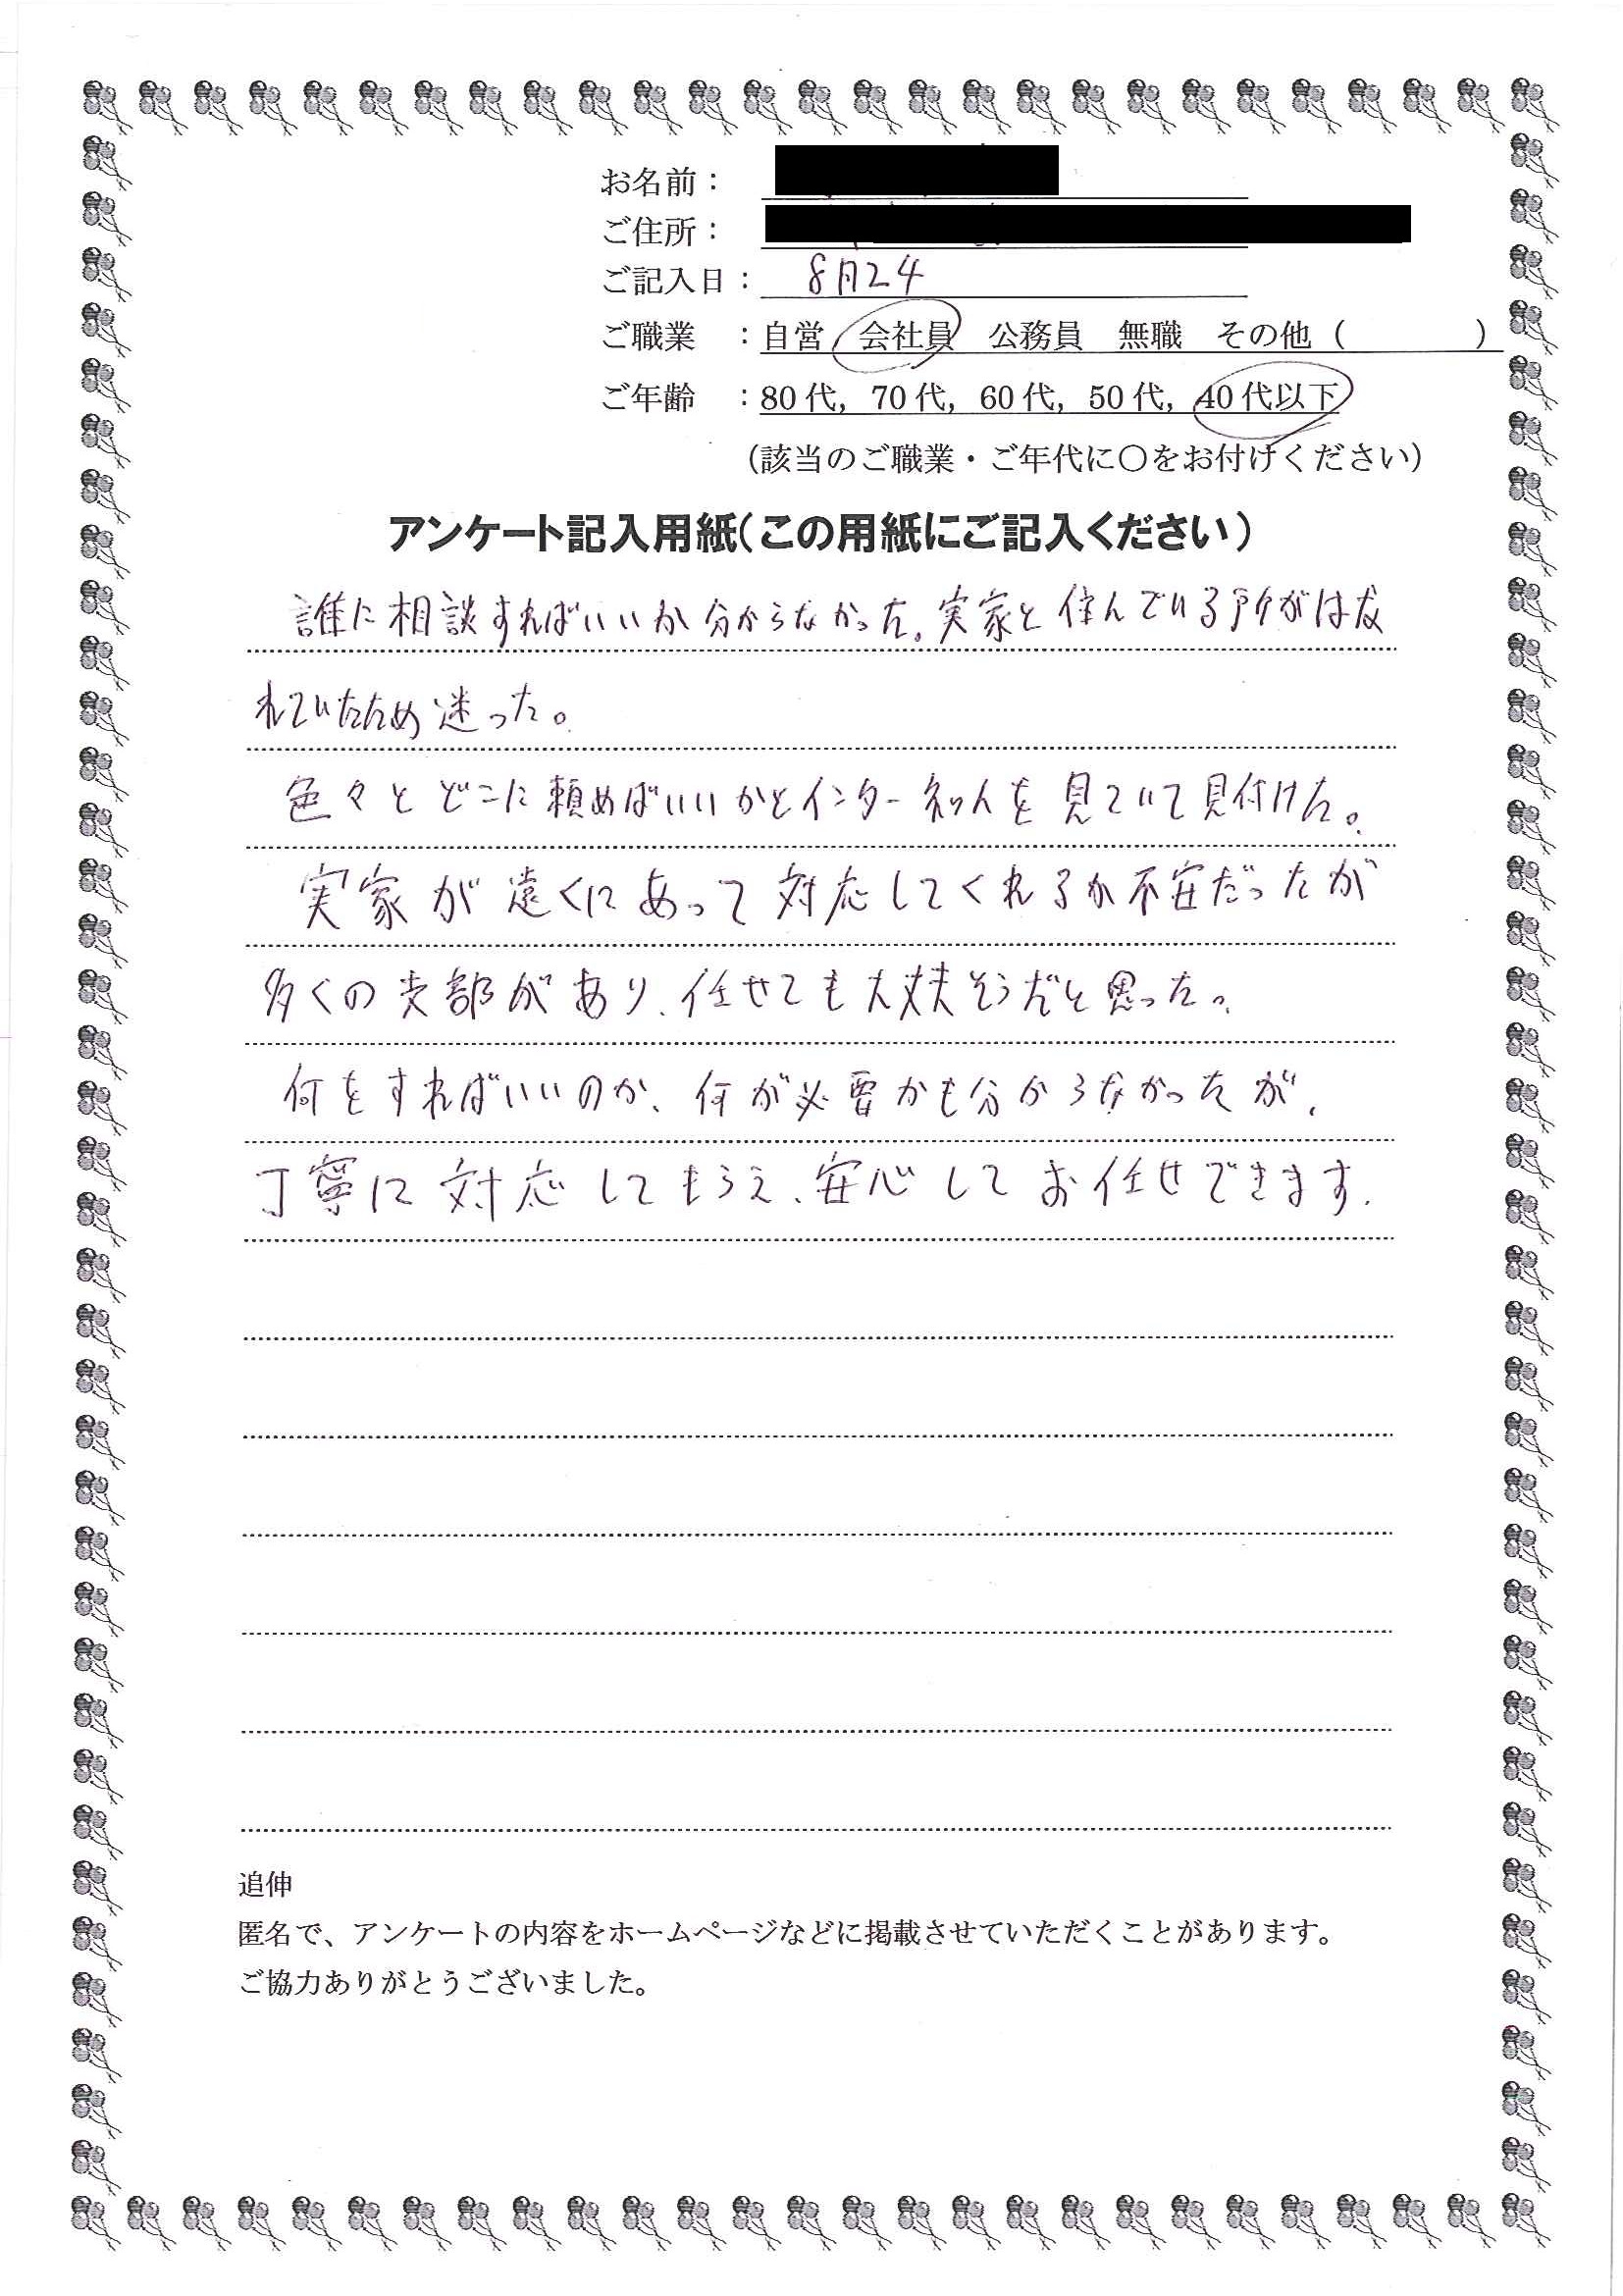 お名前：
ご住所：
ご記入日： 8月24
ご職業 ：自営 会社員 公務員 無職 その他（ ）
ご年齢 ：80代，70代，60代，50代，40代以下
（該当のご職業・ご年代に〇をお付けください）
アンケート記入用紙（この用紙にご記入ください）
誰に相談すればいいか分からなかった。実家と住んでいる所がはな
れていたため迷った。
色々とどこに頼めばいいかとインターネットを見ていて見付けた。
実家が遠くにあって対応してくれるか不安だったが
多くの支部があり、任せても大丈夫そうだと思った。
何をすればいいのか、何が必要かも分からなかったが、
丁寧に対応してもらえ、安心してお任せできます。
追伸
匿名で、アンケートの内容をホームページなどに掲載させていただくことがあります。
ご協力ありがとうございました。